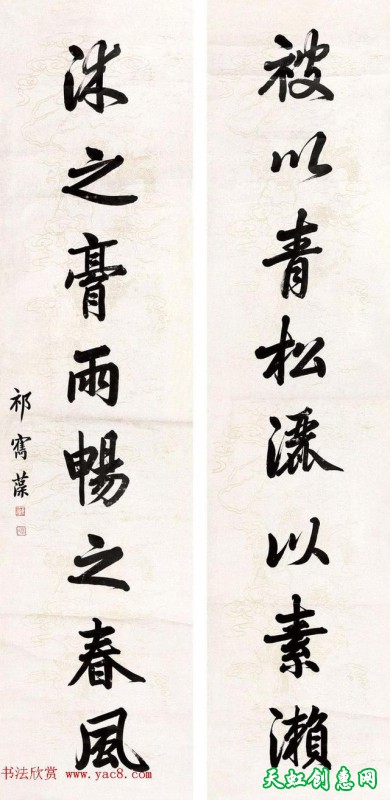 被以青松灑以素瀨
沐之膏雨暢之春風
祁寯藻
书法欣赏 www.yac8.com
天虹创惠网